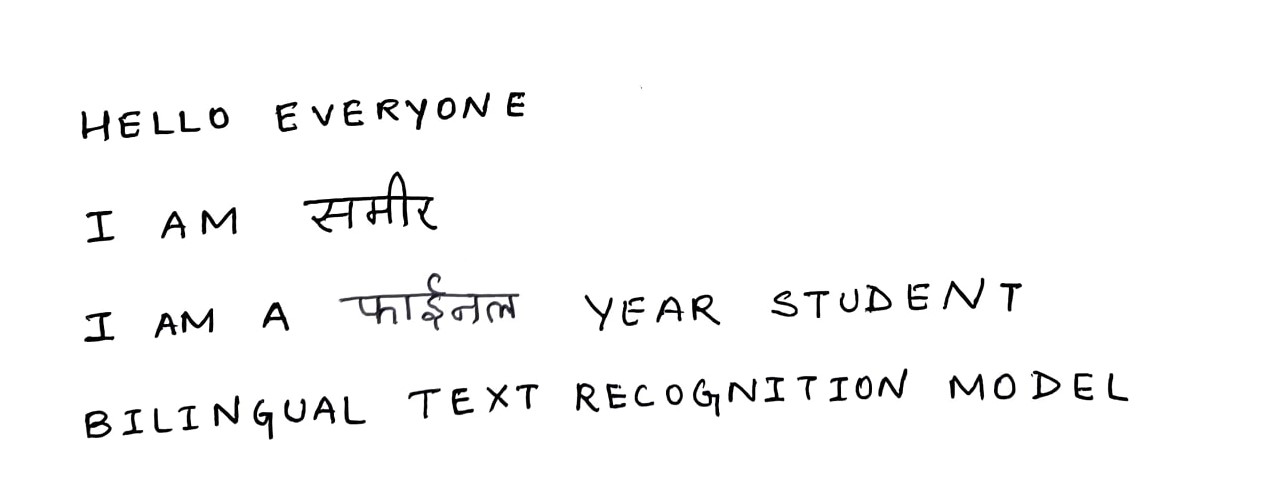 HELLO EVERYONE
I AM समीर
I AM A फाईनल YEAR STUDENT
BILINGUAL TEXT RECOGNITION MODEL